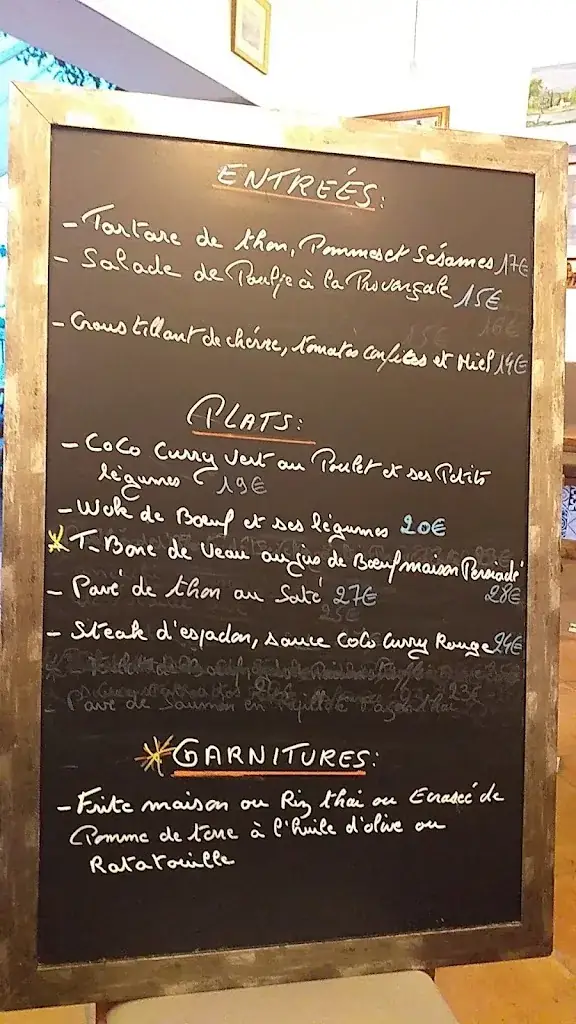 ENTREÉS:
- Tartare de thon, Pommes et Sésames 17€
- Salade de Poulpe à la Provençale 15€
- Croustillant de chèvre, tomates confites et Miel 14€
PLATS:
- Coco Curry vert au Poulet et ses Petits
légumes 19€
- Wok de Bœuf et ses légumes 20€
* T-Bone de Veau au jus de Bœuf maison Persiadé
28€
- Pavé de thon au Saté 27€
- Steak d'espadon, sauce Coco Curry Rouge 24€
- Pavé de Saumon en
*GARNITURES:
- Frite maison ou Riz thai ou Ecrasée de
Pomme de terre à l'huile d'olive ou
Ratatouille